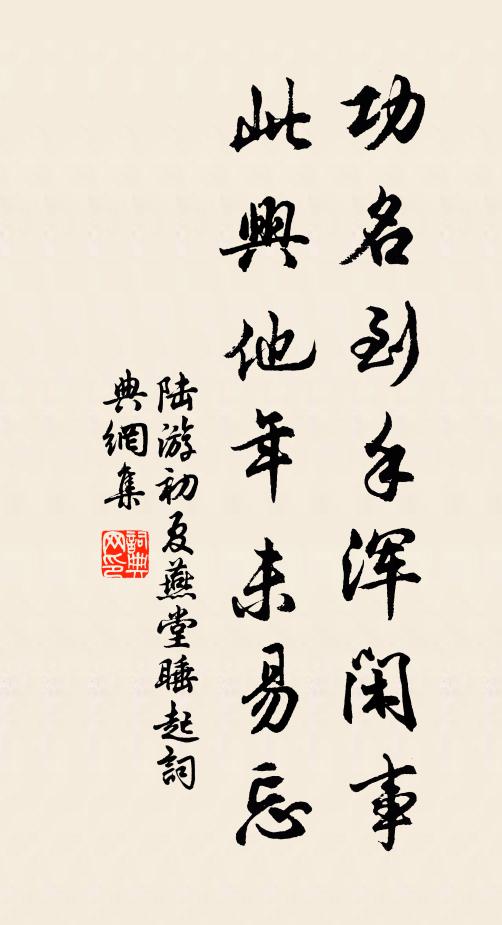 功名到手浑閑事
此興他年未易忘
陆游初夏燕堂睡起詞
典網集
詞典网印